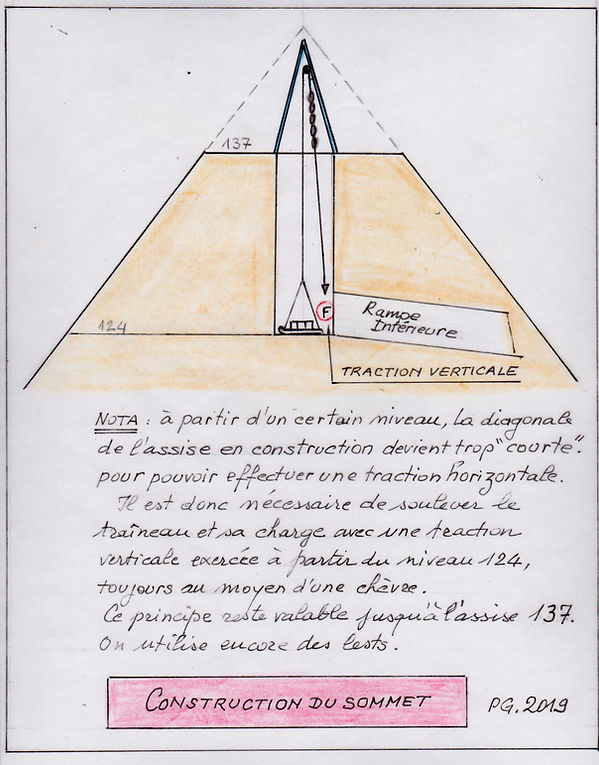 137
124
F
Rampe
Intérieure
TRACTION VERTICALE
NOTA : à partir d'un certain niveau, la diagonale
de l'assise en construction devient trop "courte".
pour pouvoir effectuer une traction horizontale.
Il est donc nécessaire de soulever le
traîneau et sa charge avec une traction
verticale exercée à partir du niveau 124,
toujours au moyen d'une chèvre.
Ce principe reste valable jusqu'à l'assise 137.
On utilise encore des lests.
CONSTRUCTION DU SOMMET
PG. 2019